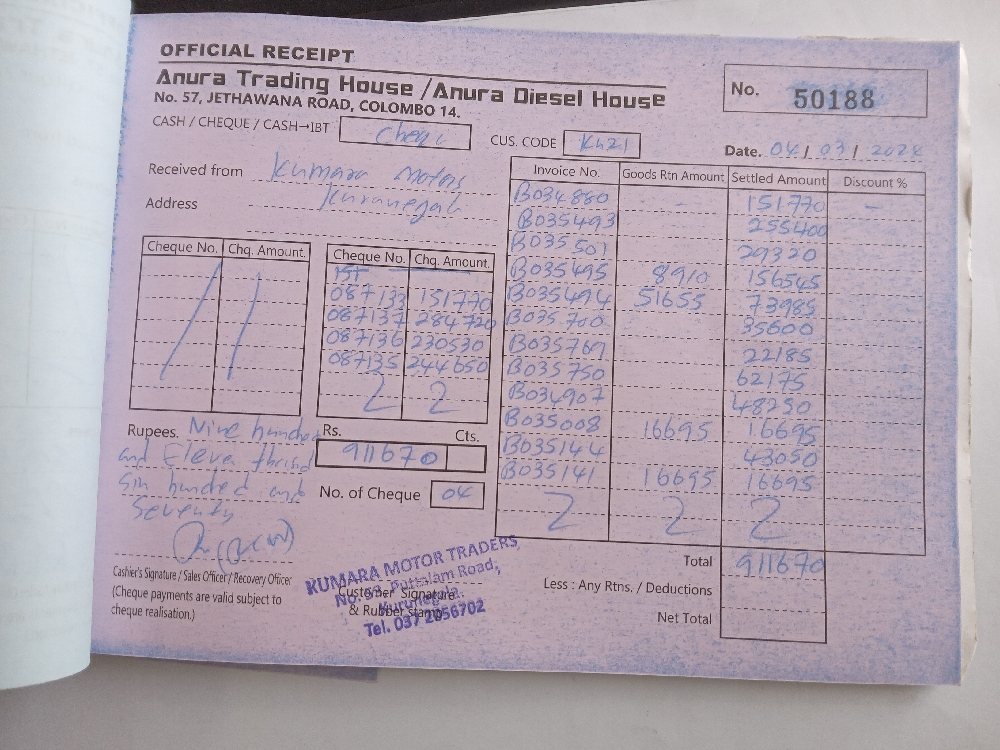 OFFICIAL RECEIPT
Anura Trading House / Anura Diesel House
No. 57, JETHAWANA ROAD, COLOMBO 14.
No. 50188
CASH / CHEQUE / CASH→IBT Cheque
CUS. CODE K421
Date. 04 / 03 / 2024
Received from Kumara Motors
Address Kurunegala
Cheque No. Chq. Amount.
Cheque No. Chq. Amount.
087133 151770
087137 284720
087136 230530
087135 244650
Invoice No. Goods Rtn Amount Settled Amount Discount %
B034880 - 151770 -
B035493 255400
B035501 29320
B035495 8910 156545
B035494 51655 73985
B035700 35600
B035769 22185
B035750 62175
B034907 48250
B035008 16695 16695
B035144 43050
B035141 16695 16695
Rupees. Nine hundred
and Eleven thousand
Six hundred and
Seventy
Rs. Cts.
911670
No. of Cheque 04
Total 911670
Less : Any Rtns. / Deductions
Net Total
Cashier's Signature / Sales Officer / Recovery Officer
(Cheque payments are valid subject to
cheque realisation.)
Customer Signature
& Rubber stamp
KUMARA MOTOR TRADERS
No. 93, Puttalam Road,
Kurunegala.
Tel. 037 2056702